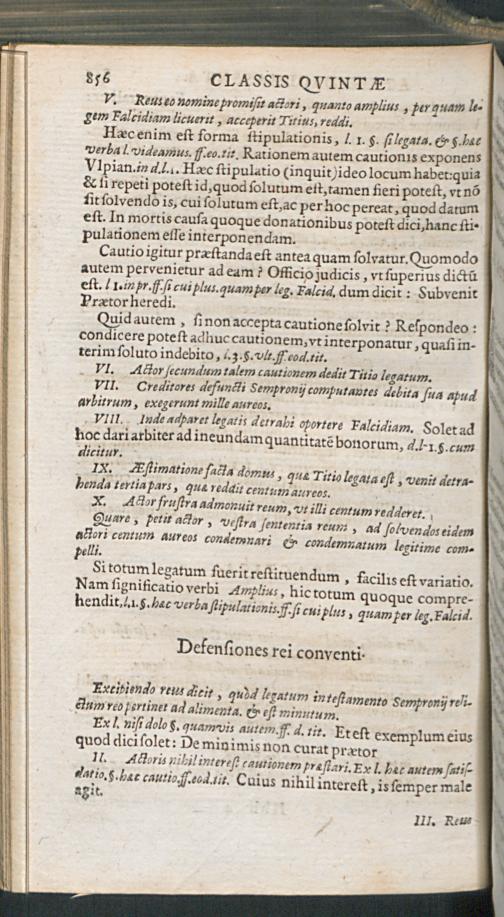 856 CLASSIS QVINTÆ
V. Reus eo nomine promisit actori, quanto amplius, per quam le-
gem Falcidiam licuerit, acceperit Titius, reddi.
Hæc enim est forma stipulationis, l. 1. §. si legata. & §. hæc
verba l. videamus. ff. eo. tit. Rationem autem cautionis exponens
Vlpian. in d. l. 1. Hæc stipulatio (inquit) ideo locum habet: quia
& si repeti potest id, quod solutum est, tamen fieri potest, vt nō
sit solvendo is, cui solutum est, ac per hoc pereat, quod datum
est. In mortis causa quoque donationibus potest dici, hanc sti-
pulationem esse interponendam.
Cautio igitur præstanda est antea quam solvatur. Quomodo
autem pervenietur ad eam? Officio judicis, vt superius dictū
est. l 1. in pr. ff. si cui plus. quam per leg. Falcid. dum dicit: Subvenit
Prætor heredi.
Quid autem, si non accepta cautione solvit? Respondeo:
condicere potest adhuc cautionem, vt interponatur, quasi in-
terim soluto indebito, l. 3. §. vlt. ff. eod. tit.
VI. Actor secundum talem cautionem dedit Titio legatum.
VII. Creditores defuncti Sempronij computantes debita sua apud
arbitrum, exegerunt mille aureos.
VIII. Inde adparet legatis detrahi oportere Falcidiam. Solet ad
hoc dari arbiter ad ineundam quantitatē bonorum, d. l. 1. §. cum
dicitur.
IX. Æstimatione facta domus, quæ Titio legata est, venit detra-
henda tertia pars, quæ reddit centum aureos.
X. Actor frustra admonuit reum, vt illi centum redderet.
Quare, petit actor, vestra sententia reum, ad solvendos eidem
actori centum aureos condemnari & condemnatum legitime com-
pelli.
Si totum legatum fuerit restituendum, facilis est variatio.
Nam significatio verbi Amplius, hic totum quoque compre-
hendit, l. 1. §. hæc verba stipulationis. ff. si cui plus, quam per leg. Falcid.
Defensiones rei conventi.
Excipiendo reus dicit, quòd legatum in testamento Sempronij reli-
ctum reo pertinet ad alimenta. & est minutum.
Ex l. nisi dolo §. quamvis autem. ff. d. tit. Et est exemplum eius
quod dici solet: De minimis non curat prætor
II. Actoris nihil interest cautionem præstari. Ex l. hæc autem satis-
datio. §. hæc cautio. ff. eod. tit. Cuius nihil interest, is semper male
agit.
III. Reus